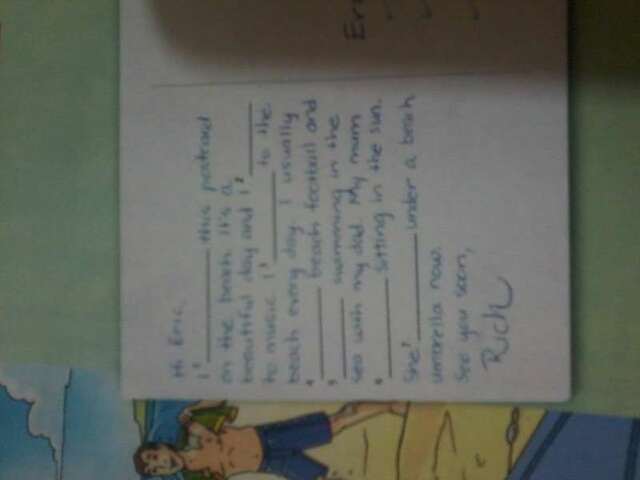 Hi Eric,
I ¹__________ this postcard
on the beach. It's a
beautiful day and I ²__________
to music. I ³__________ to the
beach every day. I usually
⁴__________ beach football and
⁵__________ swimming in the
sea with my dad. My mum
⁶__________ sitting in the sun.
She ⁷__________ under a beach
umbrella now.
See you soon,
Rich
Er